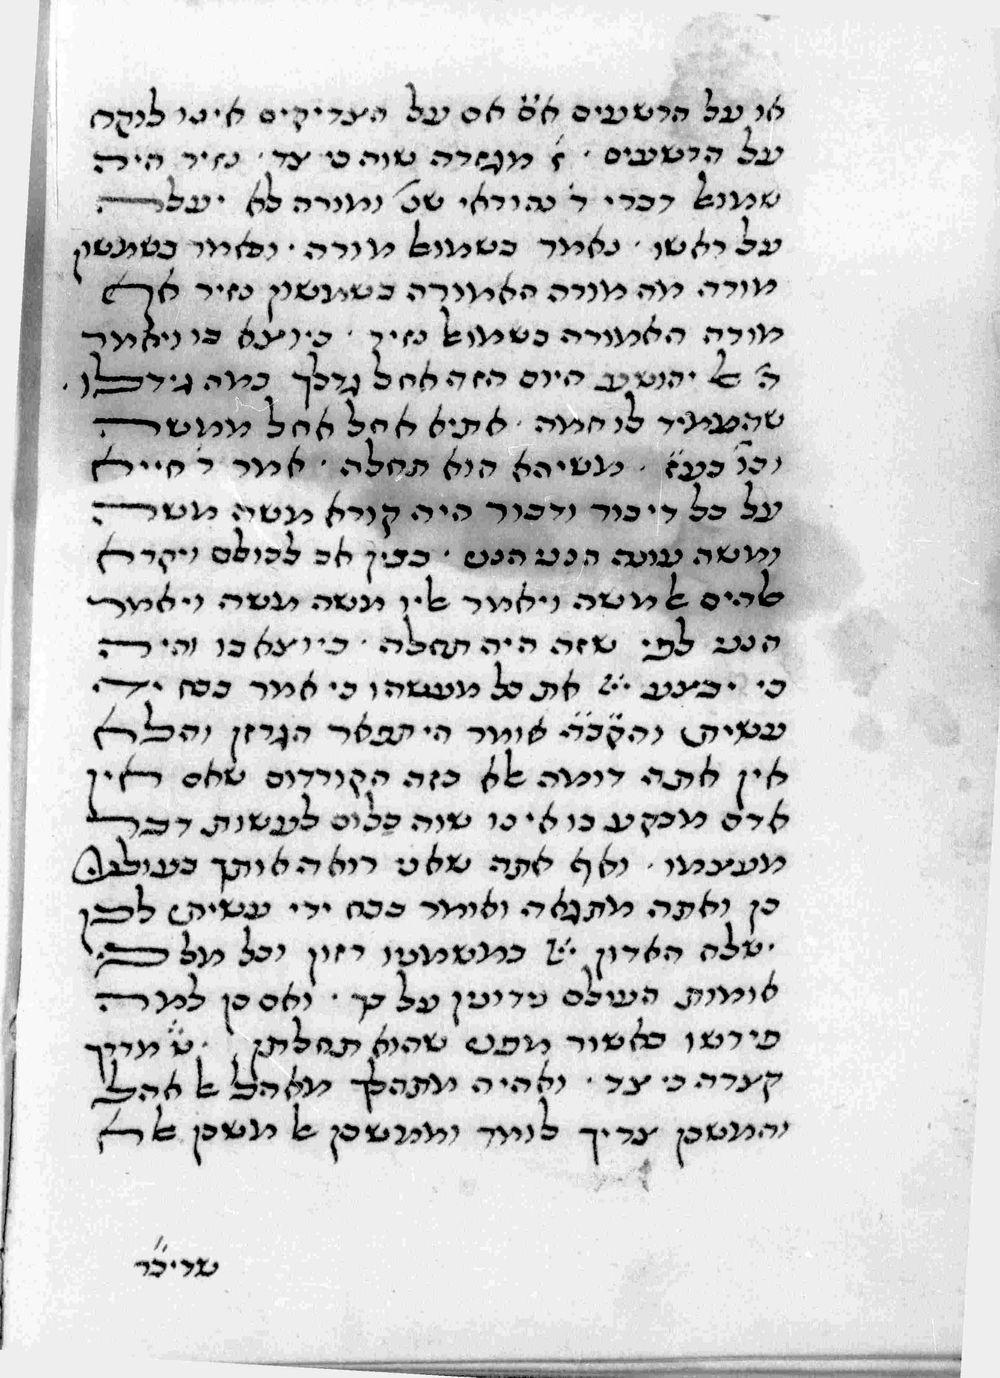 או על הרשעים אם אם על הצדיקים אינו לוקח
על הרשעים · ז מגזרה שוה כיצד · נזיר היה
שמואל דברי ר' נהוראי שנ' ומורה לא יעלה
על ראשו · נאמר בשמואל מורה · ונאמר בשמשון
מורה מה מורה האמורה בשמשון נזיר אף
מורה האמורה בשמואל נזיר · כיוצא בו ויאמר
ה' אל יהושע היום הזה אחל גדלך במה גידלו ·
שהעמיד לו חמה · אתיא אחל אחל ממשה
וכו' בע"ז · משיהא הוא תחלה · אמר ר' חייא
על כל דיבור ודבור היה קורא משה משה
ומשה עונה הנני הנני · מנין אב לכולם ויקרא
אלהים אל משה ויאמר אליו משה משה ויאמר
הנני לפי שזה היה תחלה · כיוצא בו והיה
כי יבצע יי' את כל מעשהו כי אמר בכח ידי
עשיתי והקב"ה אומר היתפאר הגרזן והלא
אין אתה דומה אלא כזה הקורדום שאם אין
אדם מבקע בו אינו שוה כלום לעשות דבר
מעצמו · ואף אתה שאני רואה אותך בעולמי
כן ואתה מתגאה ואומר בכח ידי עשיתי לכן
ישלח האדון יי' במשמניו רזון וכל מלכי
אומות העולם נידונין על כך · ואם כן למה
פירשו באשור מפני שהוא תחלתן · ט' מדרך
קצרה כיצד · ואהיה מתהלך מאהל אל אהל
והמשכן צריך לומר וממשכן אל משכן אלא